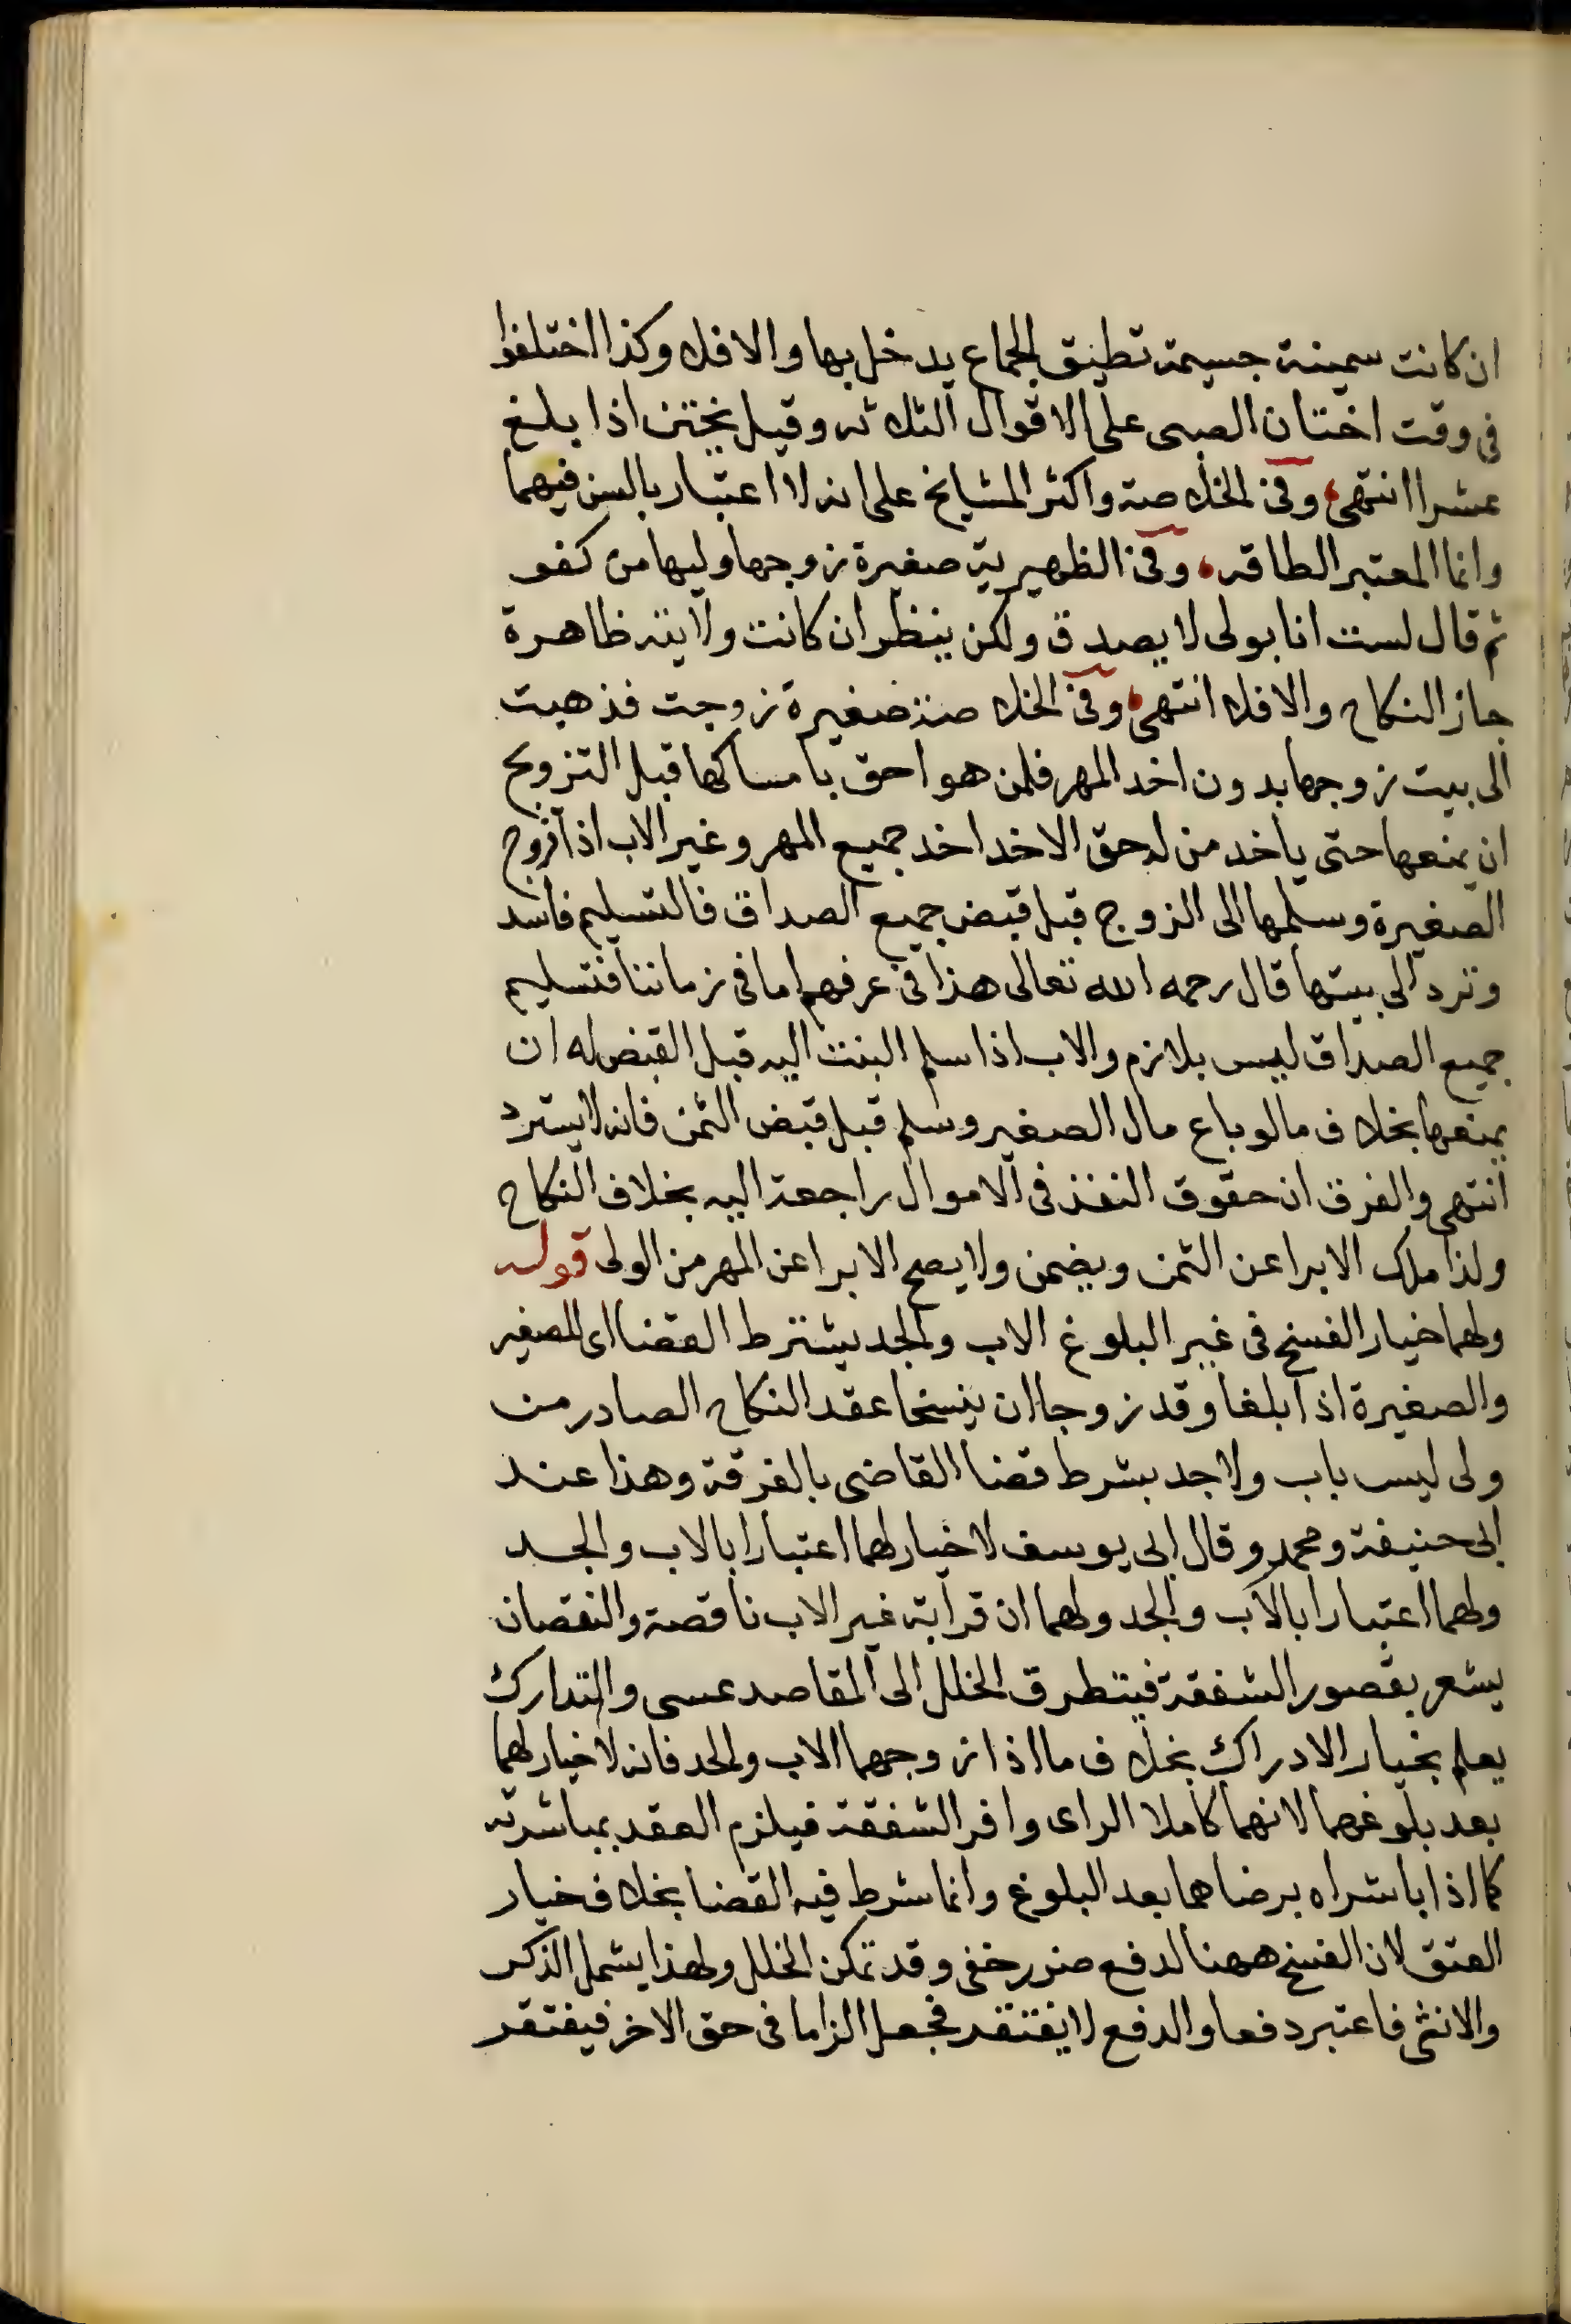 ان كانت سمينة جسيمة تطيق الجماع يدخل بها والا فلا وكذا اختلفوا
فى وقت اختتان الصبى على الاقوال الثلاثه وقيل يختتن اذا بلغ
عشرا انتهى وفى الخلاصة واكثر المشايخ على انه لا اعتبار بالسن فيهما
وانما المعتبر الطاقه وفى الظهيرية صغيرة زوجها وليها من كفو
ثم قال لست انا بولى لا يصدق ولكن ينظر ان كانت ولايته ظاهرة
جاز النكاح والا فلا انتهى وفى الخلاصة صغيرة زوجت فذهبت
الى بيت زوجها بدون اخد المهر فلمن هو احق بامساكها قبل التزويج
ان يمنعها حتى ياخد من له حق الاخد اخد جميع المهر وغير الاب اذا زوج
الصغيرة وسلمها الى الزوج قبل قبض جميع الصداق فالتسليم فاسد
وترد الى بيتها قال رحمه الله تعالى هذا فى عرفهم اما فى زماننا فتسليم
جميع الصداق ليس بلازم والاب اذا سلم البنت اليه قبل القبض له ان
يمنعها بخلاف ما لو باع مال الصغير وسلم قبل قبض الثمن فانه لا يسترد
انتهى والفرق ان حقوق النفذ فى الاموال راجعة اليه بخلاف النكاح
ولذا ملك الابرا عن الثمن ويضمن ولا يصح الابرا عن المهر من الولى قوله
ولهما خيار الفسخ فى غير البلوغ الاب والجد يشترط القضا اى للصغير
والصغيرة اذا بلغا وقد زوجا ان يفسخا عقد النكاح الصادر من
ولى ليس باب ولا جد بشرط قضا القاضى بالفرقة وهذا عند
ابى حنيفة ومحمد وقال ابى يوسف لا خيار لهما اعتبارا بالاب والجد
ولهما اعتبارا بالاب والجد ولهما ان قرابة غير الاب ناقصة والنقصان
يشعر بقصور الشفقة فيتطرق الخلل الى المقاصد عسى والتدارك
يعلم بخيار الادراك بخلاف ما اذا زوجهما الاب والجد فانه لا خيار لهما
بعد بلوغهما لانهما كاملا الراى وافر الشفقة فيلزم العقد بمباشرته
كما اذا باشراه برضاهما بعد البلوغ وانما شرط فيه القضا بخلاف خيار
العتق لان الفسخ ههنا لدفع ضرر خفى وقد تمكن الخلل ولهذا يشمل الذكر
والانثى فاعتبر دفعا والدفع لا يفتقد فجعل الزاما فى حق الاخر فيفتقر